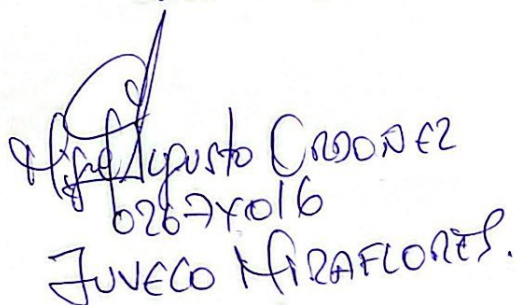 Miguel Augusto ORDOÑEZ
02674016
JUVECO MIRAFLORES.